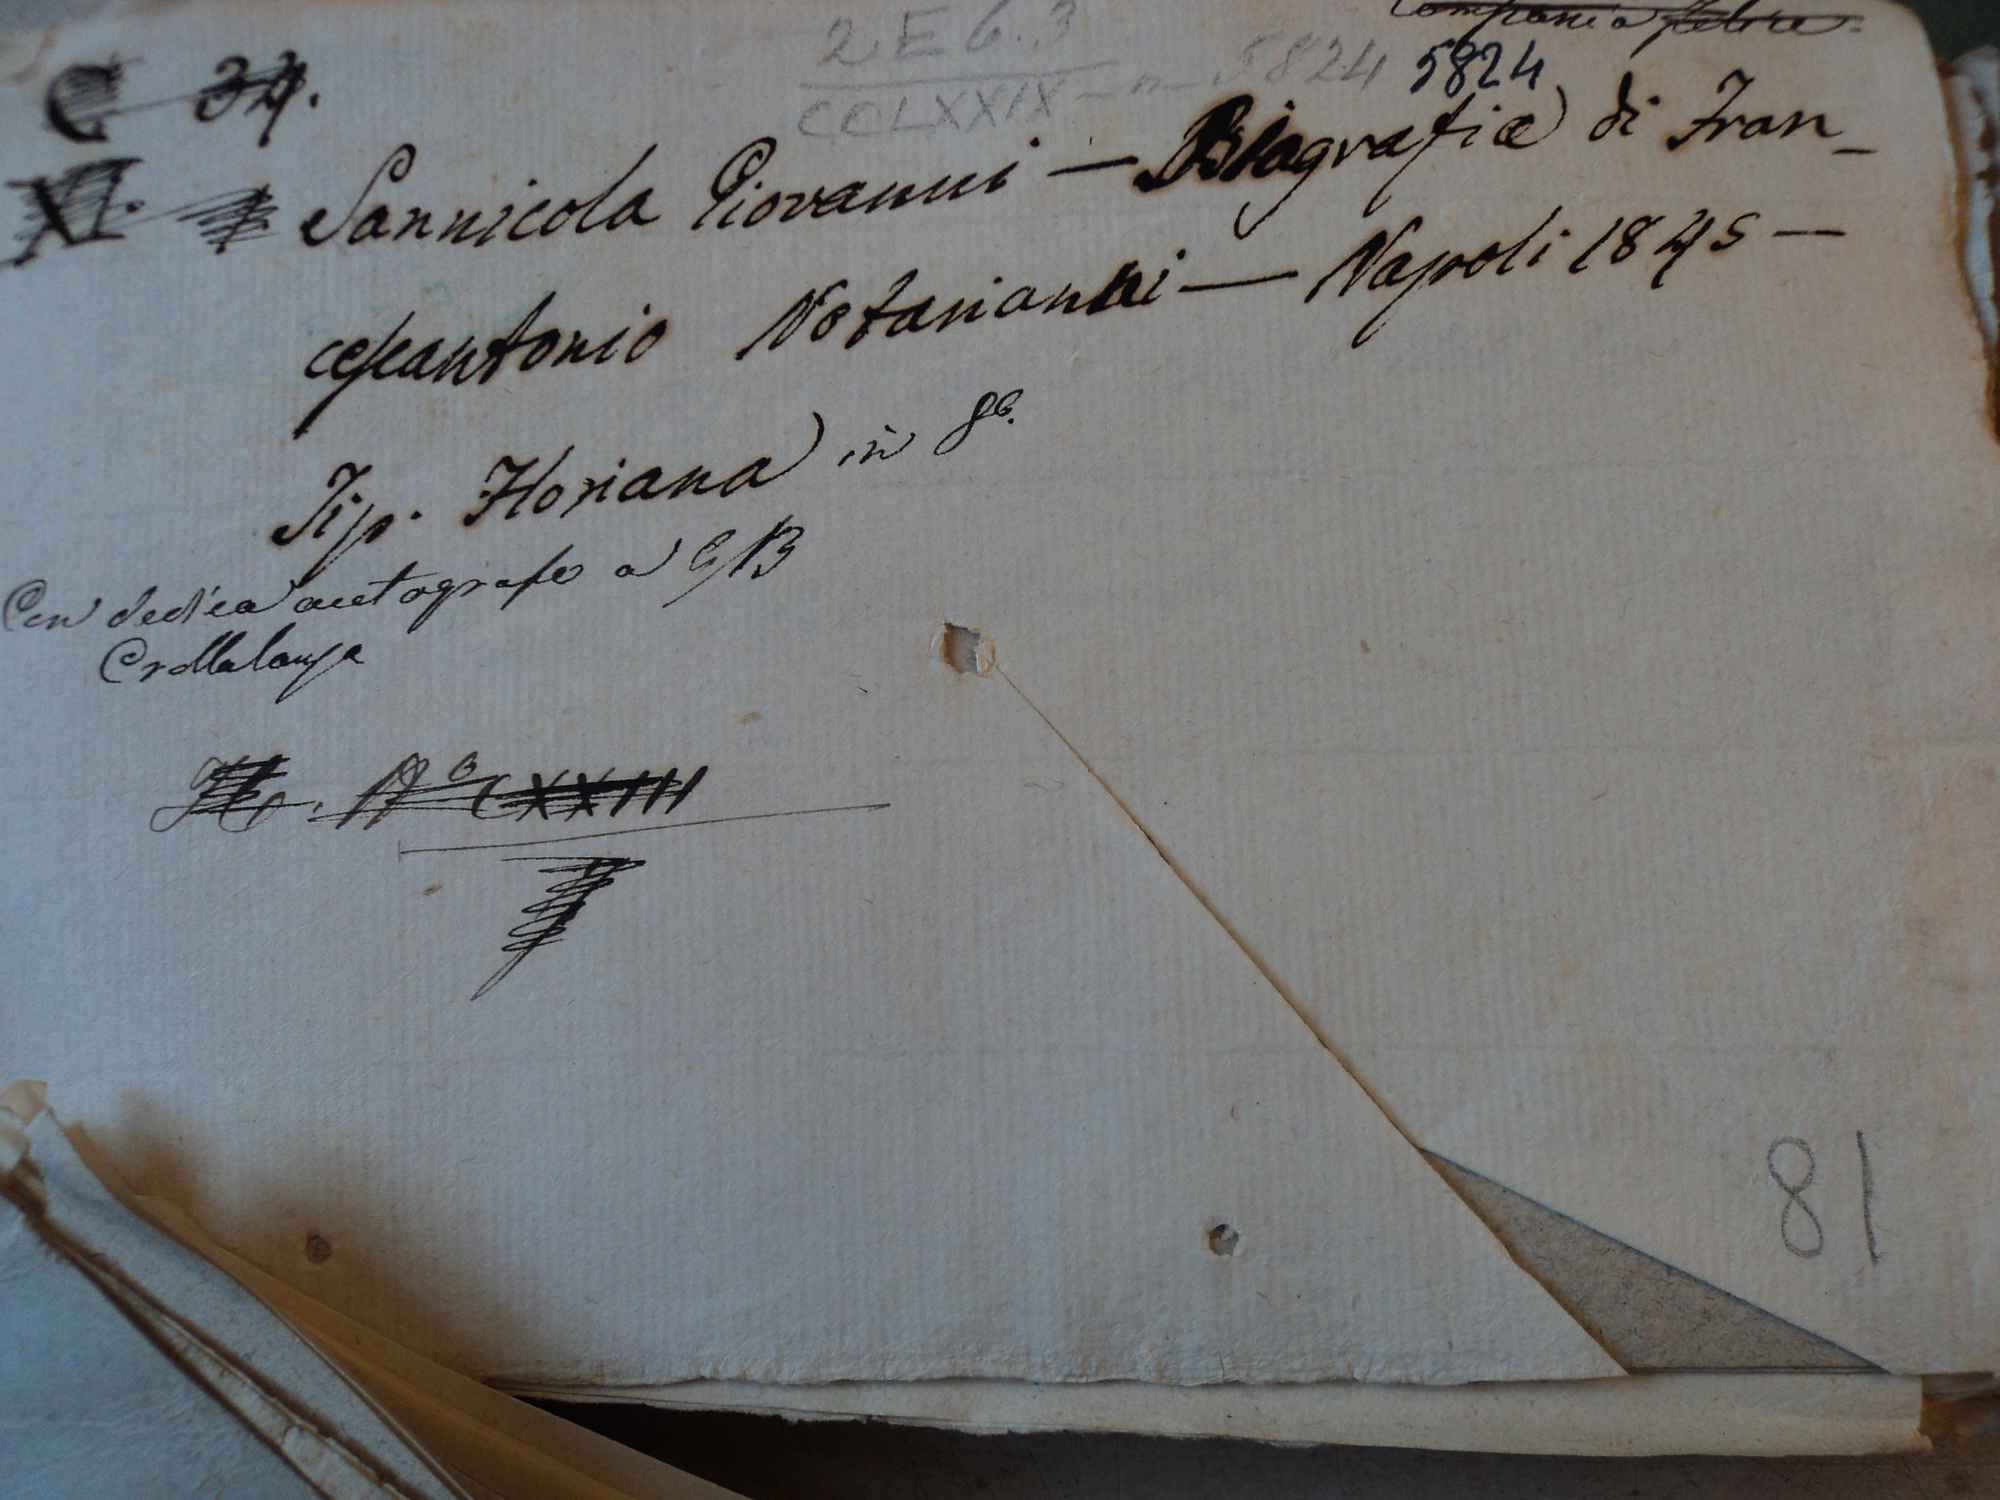 2 E 6.3
CCLXXIX - n - 5824 5824
C 34.
XI.
Sannicola Giovanni — Biografia di Fran-
cescantonio Notarianni — Napoli 1845 —
Tip. Floriana in 8º.
Con dedica autografa a G B
Crollalanza
Nº CXXIII
81